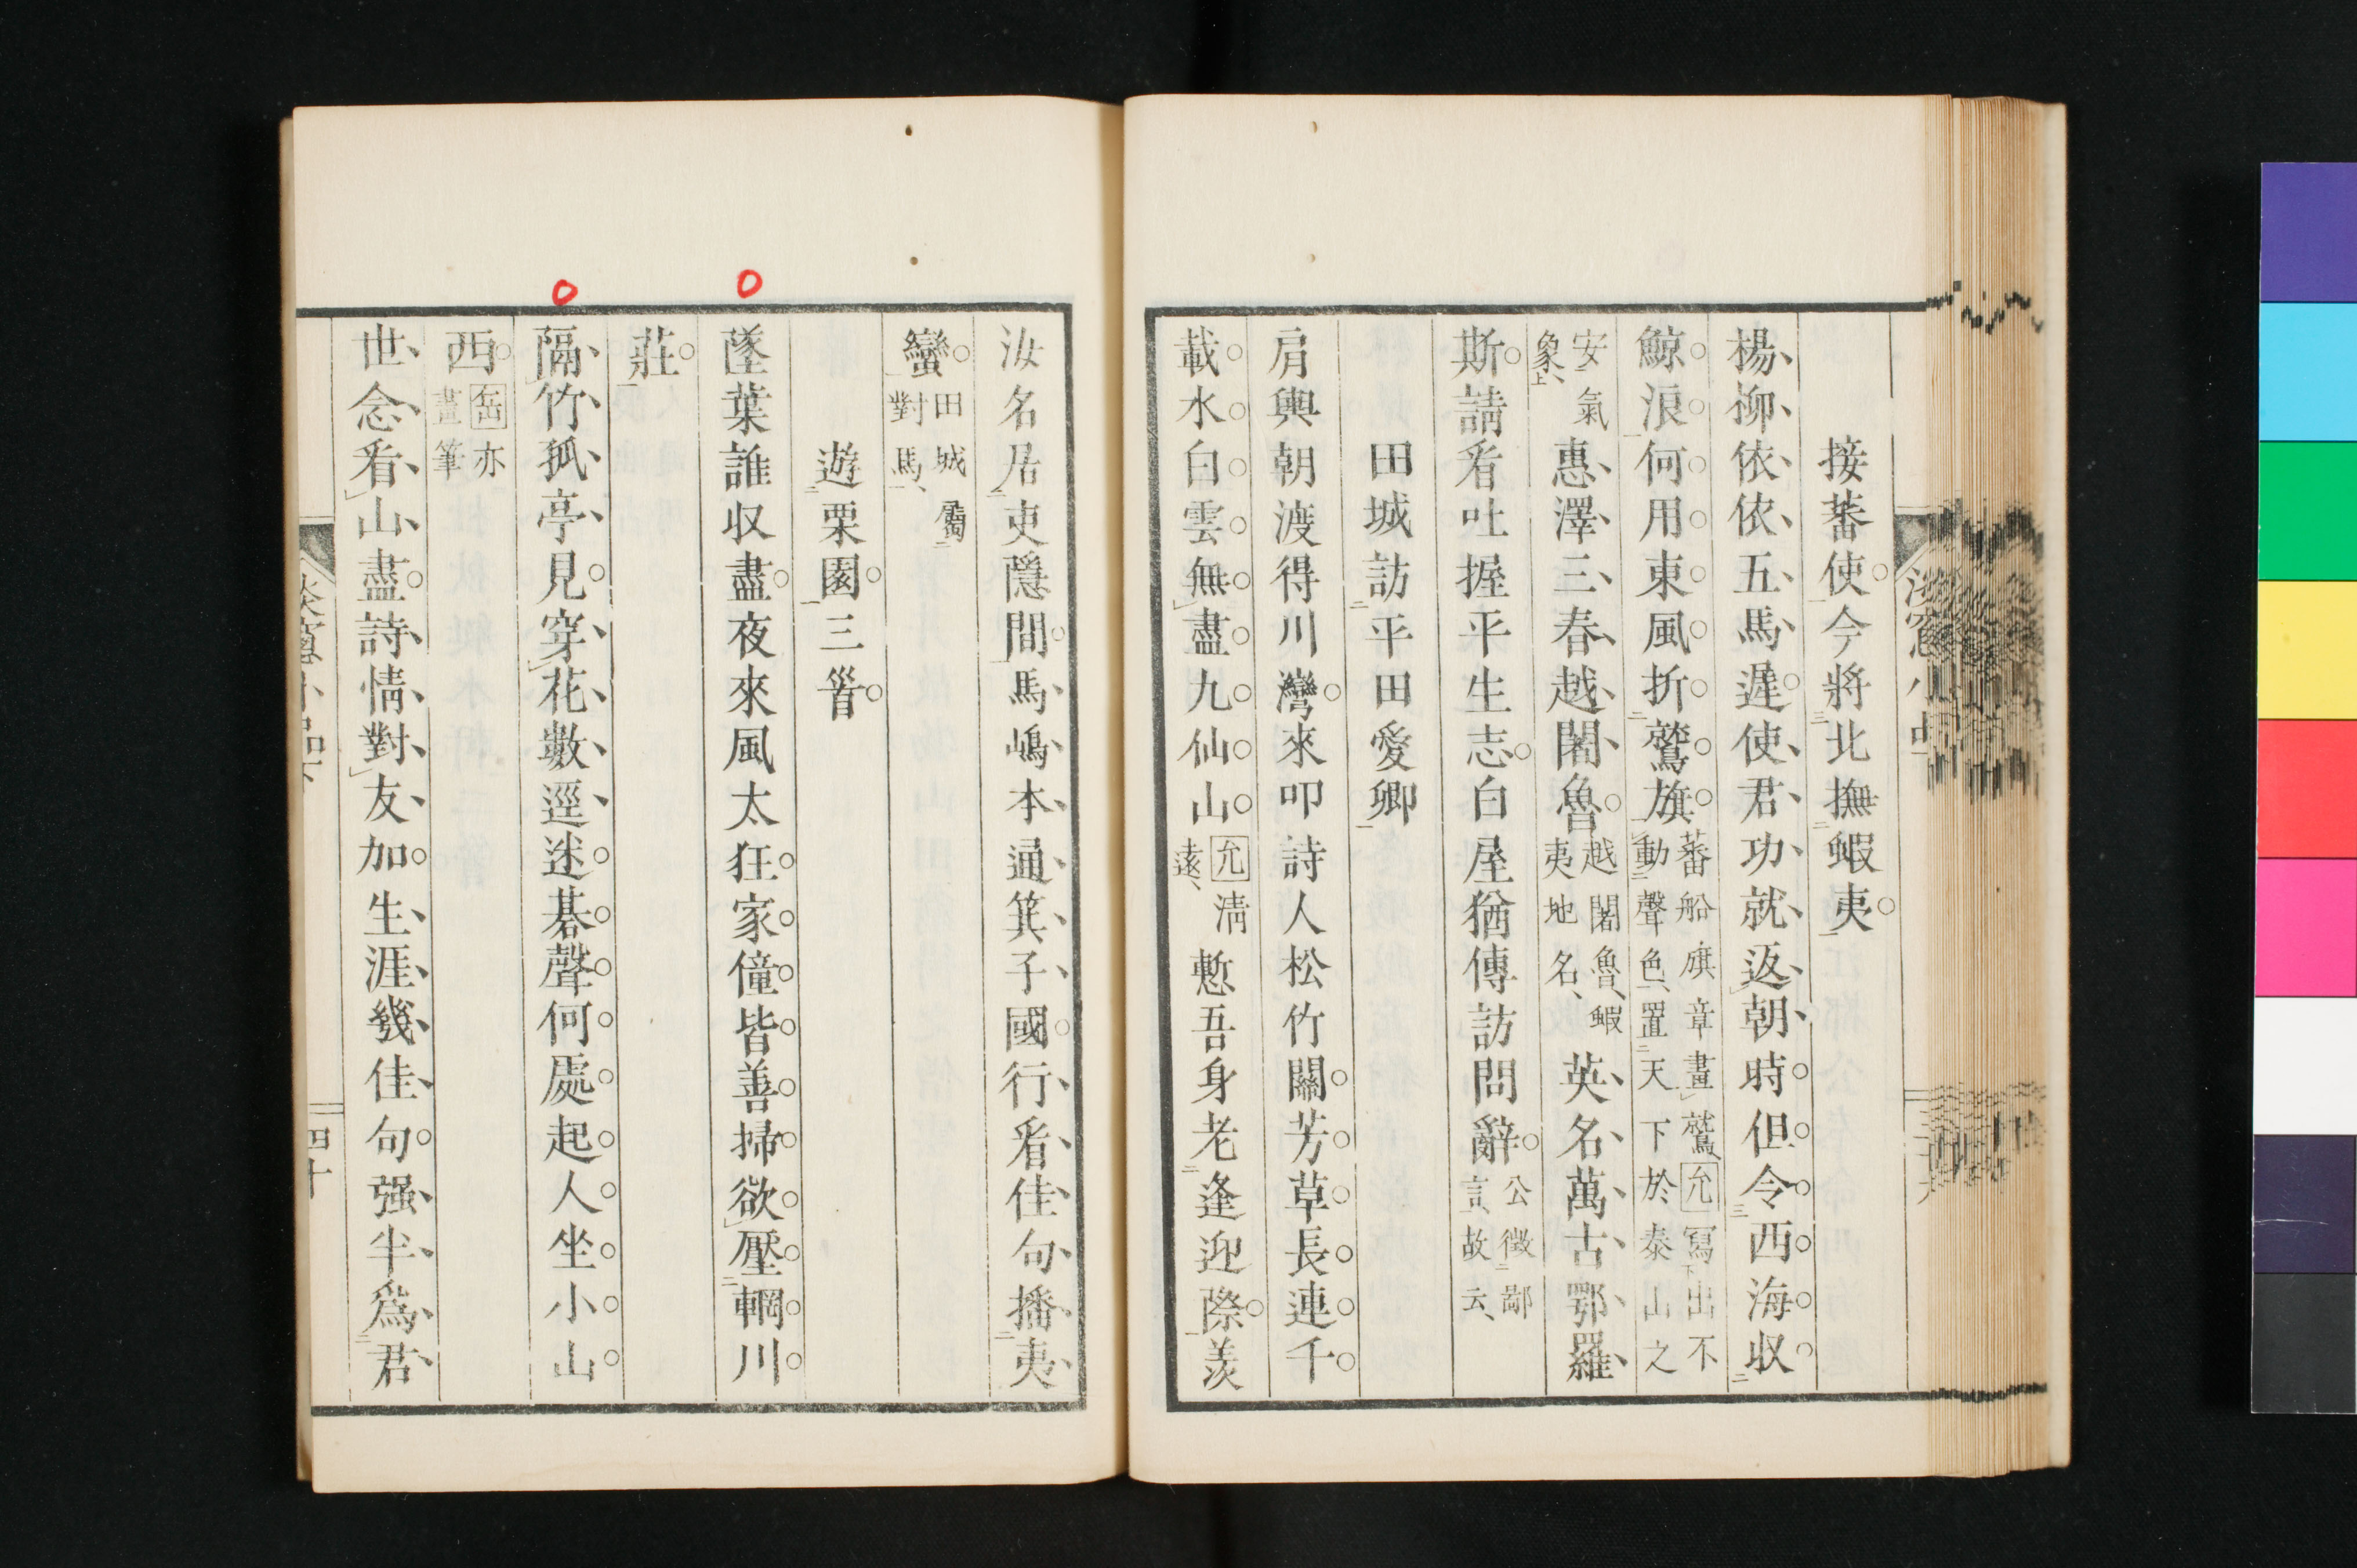 接蕃使今將北撫蝦夷
楊柳依依五馬遲使君功就返朝時但令西海収
鯨浪何用東風折鷲旗蕃船旗章畫鷲、允寫出不
動聲色、置天下於泰山之
安氣
象、上惠澤三春越闍魯越闍魯、蝦
夷地名、英名萬古鄂羅
斯請看吐握平生志白屋猶傳訪問辭公徵鄙
言、故云、
田城訪平田愛卿
肩輿朝渡得川灣來叩詩人松竹關芳草長連千
載水白雲無盡九仙山允清
遠、慙吾身老逢迎際羨
汝名居吏隱間馬嶋本通箕子國行看佳句播夷
蠻田城屬
對馬、
遊栗園三首
墜葉誰収盡夜來風太狂家僮皆善掃欲壓輞川
莊
隔竹孤亭見穿花數逕迷碁聲何處起人坐小山
西亦
畫筆
世念看山盡詩情對友加生涯幾佳句强半爲君
四十